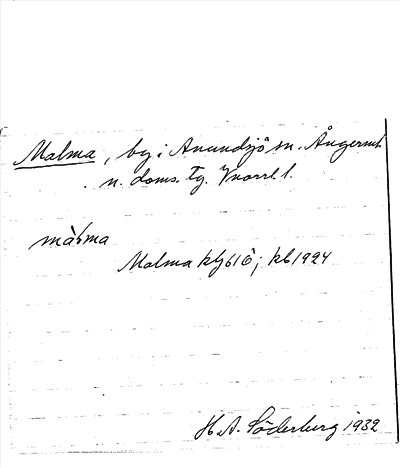 Malma, by i Anundsjö sn. Ångerml.
n. doms. tg. Vnorrl l.
màlma
Malma kb 1924
H. A. Söderberg 1932